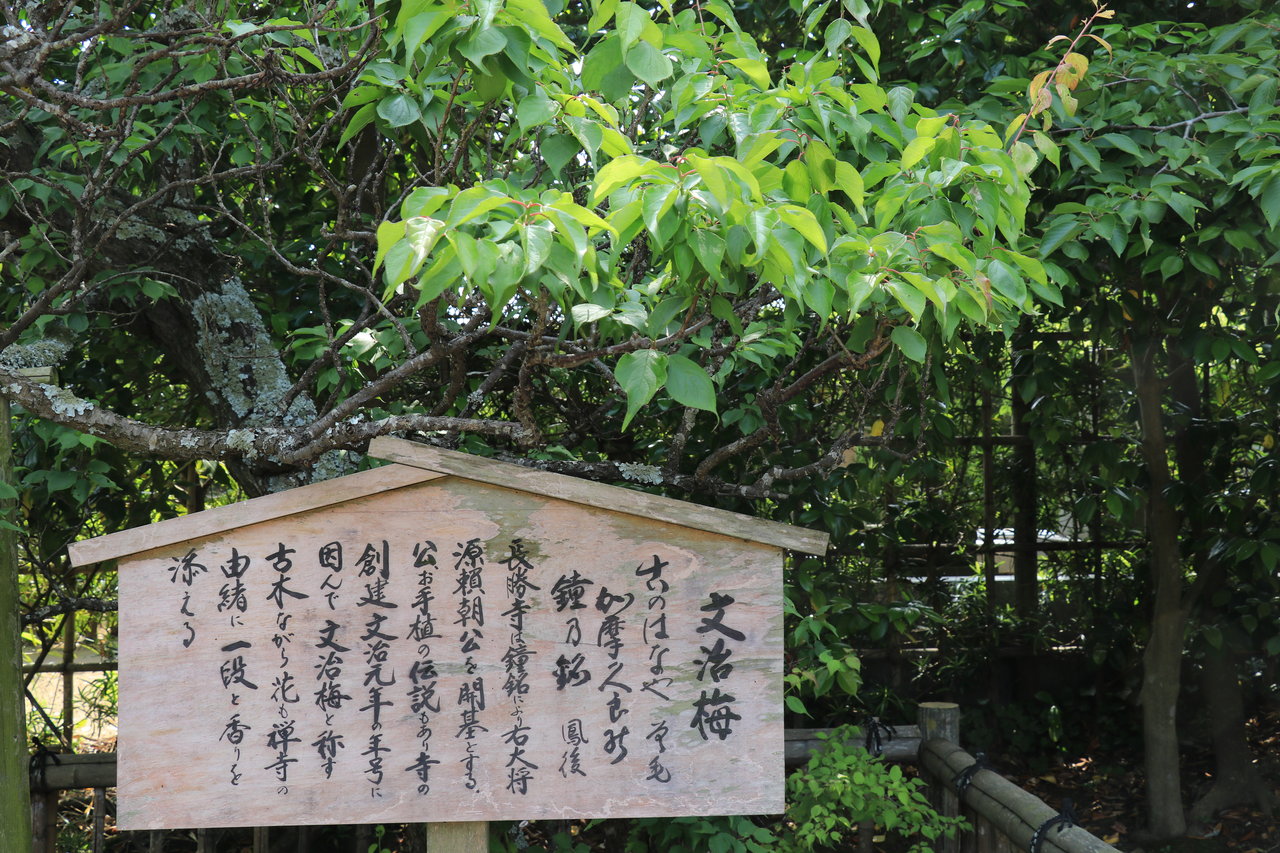 文治梅
古のはなや
加摩久良能
鐘乃銘　鳳後
長勝寺は鐘銘により右大将
源頼朝公を開基とする
公、お手植の伝説もあり寺の
創建文治元年の年号に
因んで文治梅と称す
古木ながら花も禅寺の
由緒に一段と香りを
添える